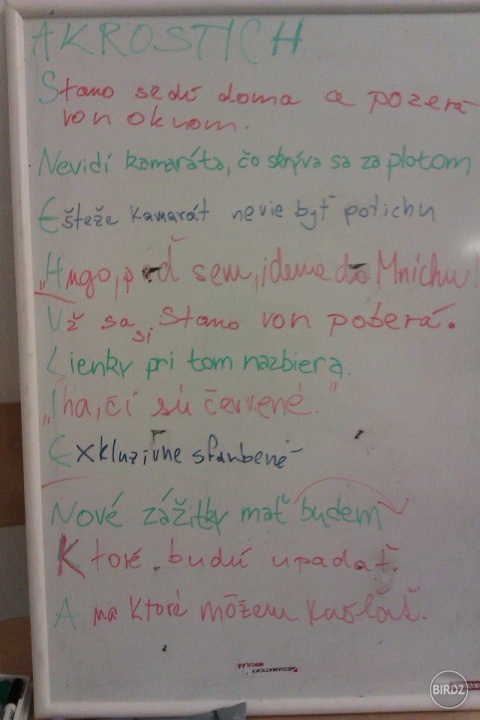 AKROSTICH
Stano sedí doma a pozerá
von oknom.
Nevidí kamaráta, čo skrýva sa za plotom
Ešteže kamarát nevie byť potichu
„Hugo, poď sem, ideme do Mníchu!
Už sa si Stano von poberá.
Lienky pri tom nazbiera.
„Iha, čí sú červené."
Exkluzívne sfarbené
Nové zážitky mať budem
Ktoré budú upadať.
A na ktoré môžem kašlať.
BIRDZ